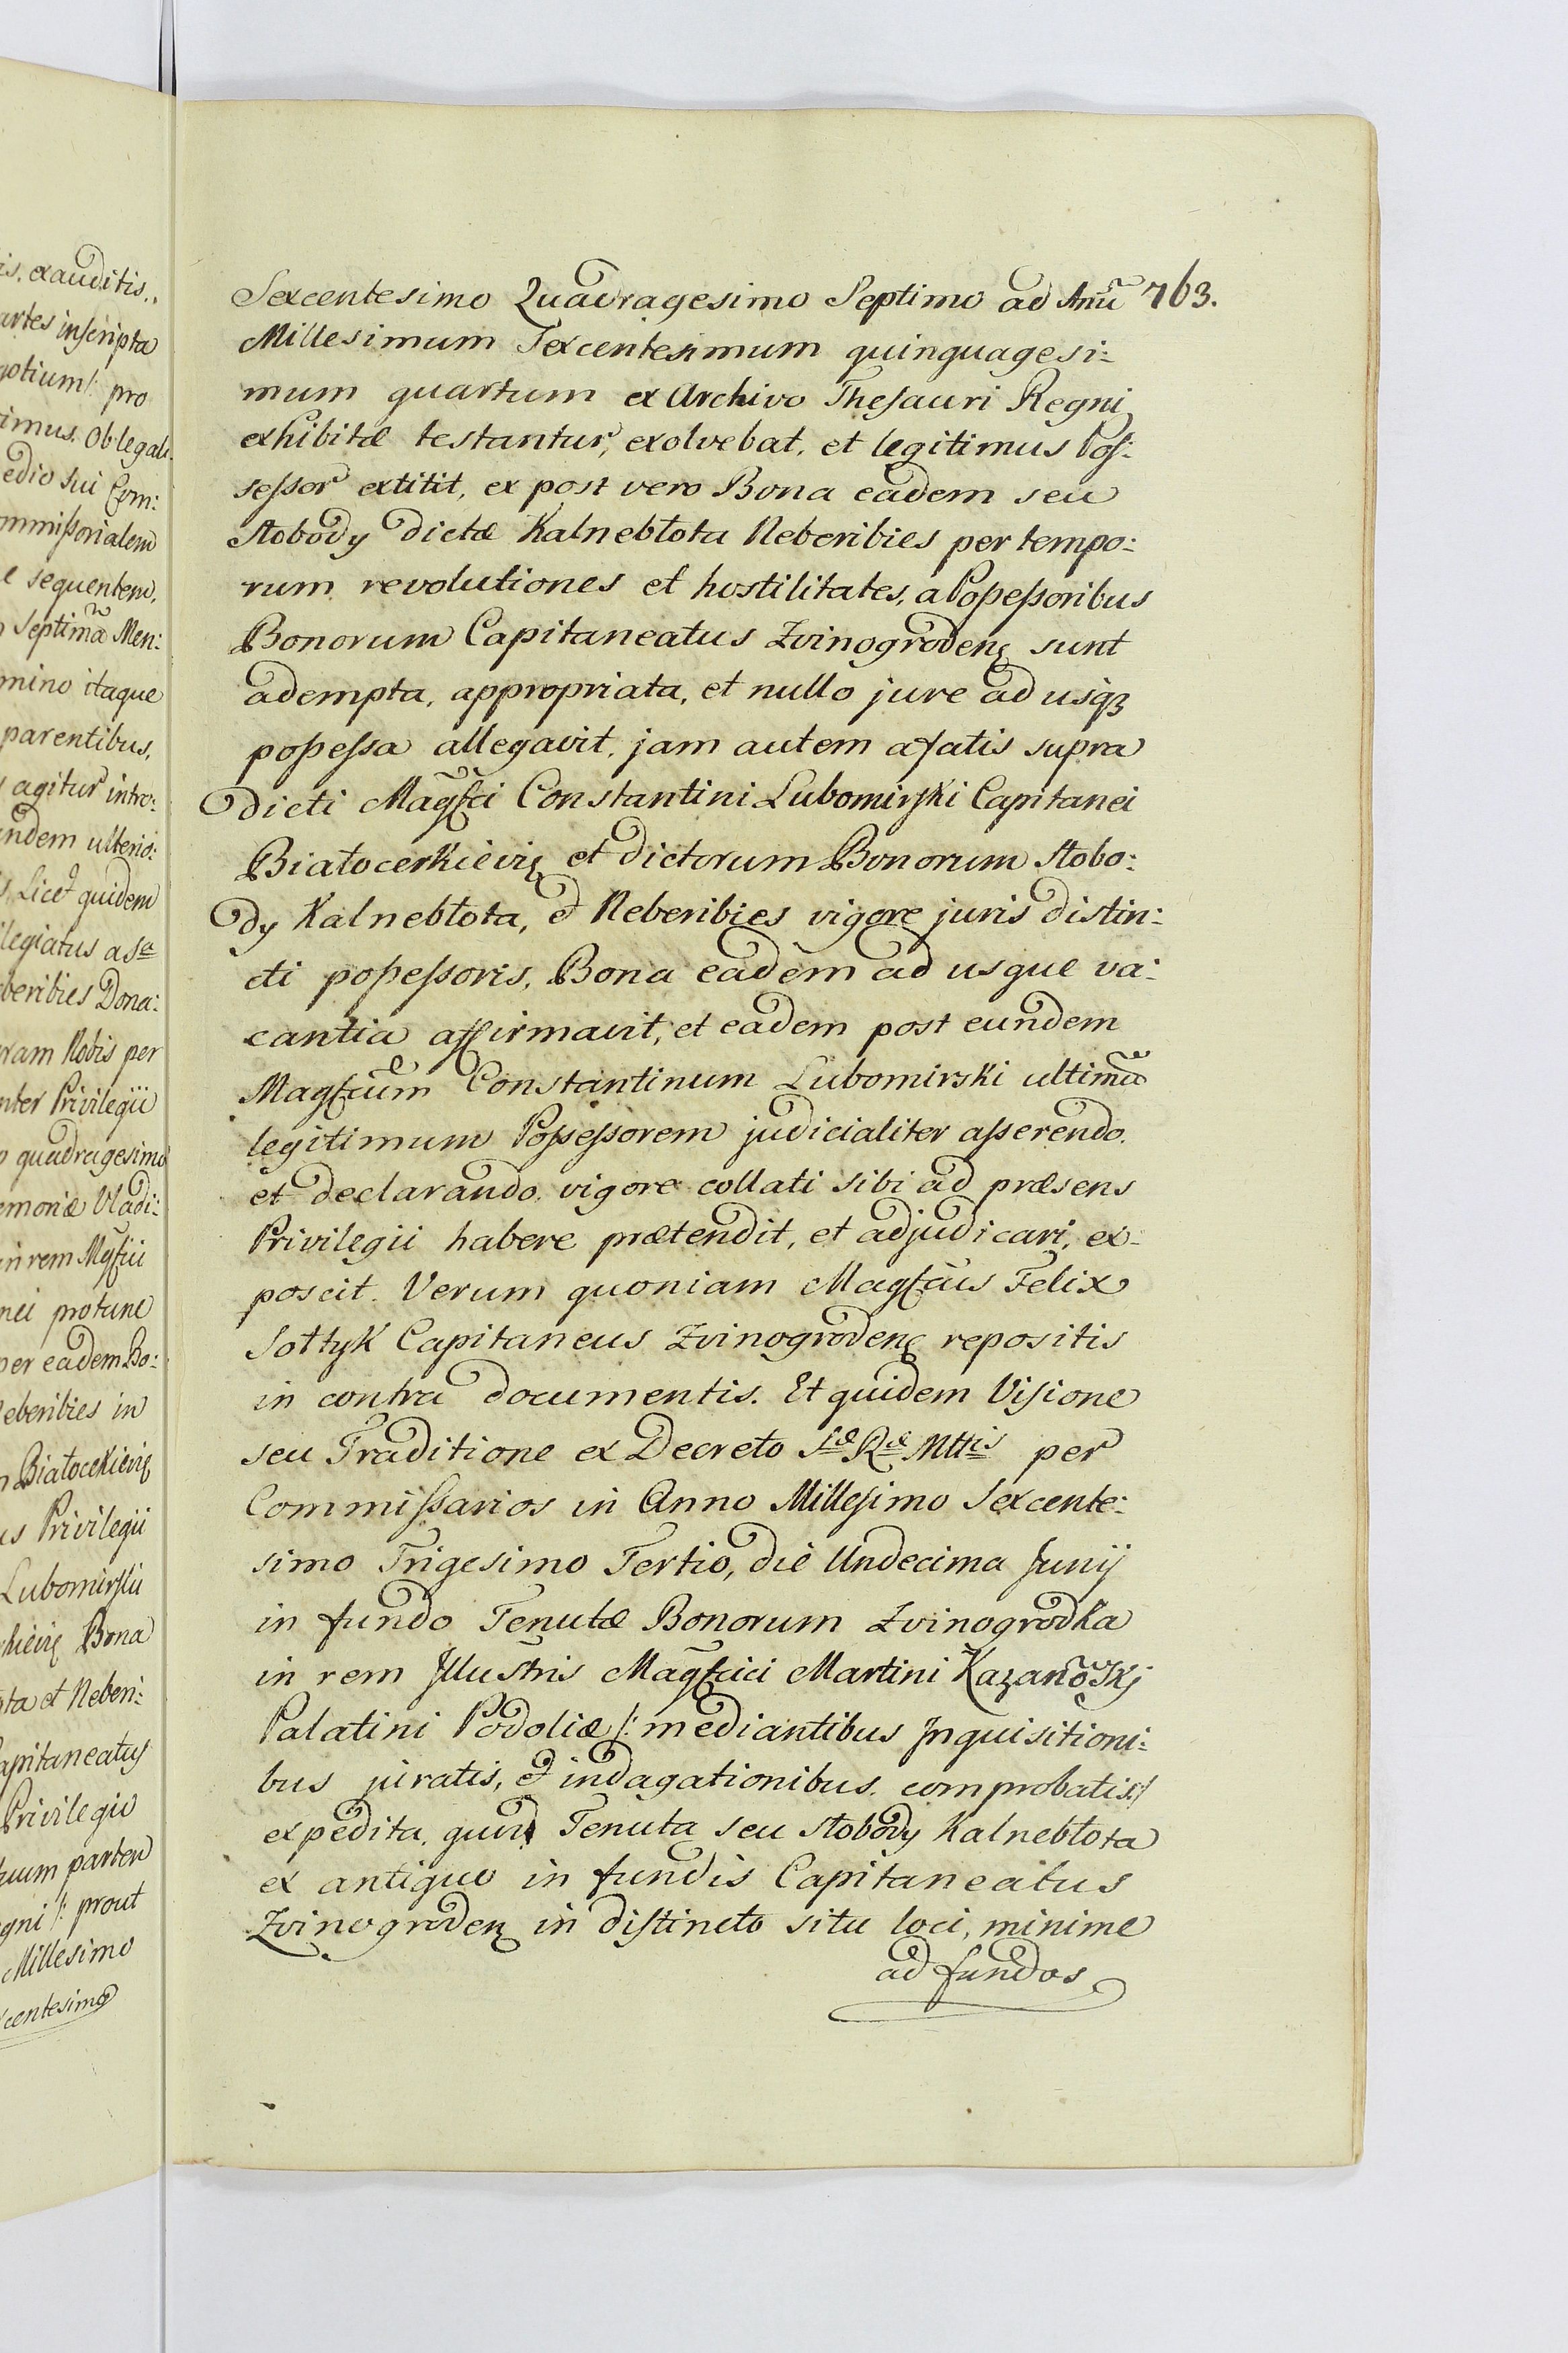 is. exauditis.,
artes inscripta
gotium /: pro
imus. Ob legali
edio sui Com:
ommissorialem
e sequentem,
Septimã Men:
mino itaque
parentibus,
agitur intro:
undem ulterio:
s, Licet quidem
ilegiatus a Sa
beribies Dona:
ram Nobis per
nter Privilegii
o quadragesimo
emoriæ Vladi:
in rem Mgfci
nei protunc
per eadem Bo:
Neberibies in
Białocekievię
us Privilegii
Lubomirski
kievię Bona
ota et Neberi:
apitaneatus
Privilegio
quum partem
egni /: prout
Millesimo
xcentesimo
Sexcentesimo Quadragesimo Septimo ad Anũ 763.
Millesimum Sexcentesimum quinquagesi:
mum quartum ex Archivo Thesauri Regni
exhibitæ testantur, exolvebat, et legitimus Pos:
sessor extitit, ex post vero Bona eadem seu
Słobody dictæ Kalnebłota Neberibies per tempo:
rum revolutiones et hostilitates, a Possessoribus
Bonorum Capitaneatus Zvinogrodenę sunt
adempta, appropriata, et nullo jure ad usqꝫ
possessa allegavit, jam autem a fatis supra
dicti Magfci Constantini Lubomirski Capitanei
Białocerkievię et dictorum Bonorum Słobo:
dy Kalnebłota, et Neberibies vigore juris distin:
cti possessoris, Bona eadem ad usque va:
cantia affirmavit, et eadem post eundem
Magfcum Constantinum Lubomirski ultimũ
legitimum Possessorem judicialiter asserendo.
et declarando. vigore collati sibi ad præsens
Privilegii habere prætendit, et adjudicari, ex:
poscit. Verum quoniam Magfcus Felix
Sołtyk Capitaneus Zvinogrodenę repositis
in contra documentis. Et quidem Visione
seu Traditione ex Decreto Sæ Ræ Mttis per
Commissarios in Anno Millesimo Sexcente:
simo Trigesimo Tertio, die Undecima Junij
in fundo Tenutæ Bonorum Zvinogrodka
in rem Jllustris Magfcici Martini Kazanõski
Palatini Podoliæ /: mediantibus Jnquisitioni:
bus juratis, et indagationibus. comprobatis :/
expedita. quod Tenuta seu Słobody Kalnebłota
ex antiquo in fundis Capitaneatus
Zvinogrodenę in distincto situ loci, minime
ad fundos